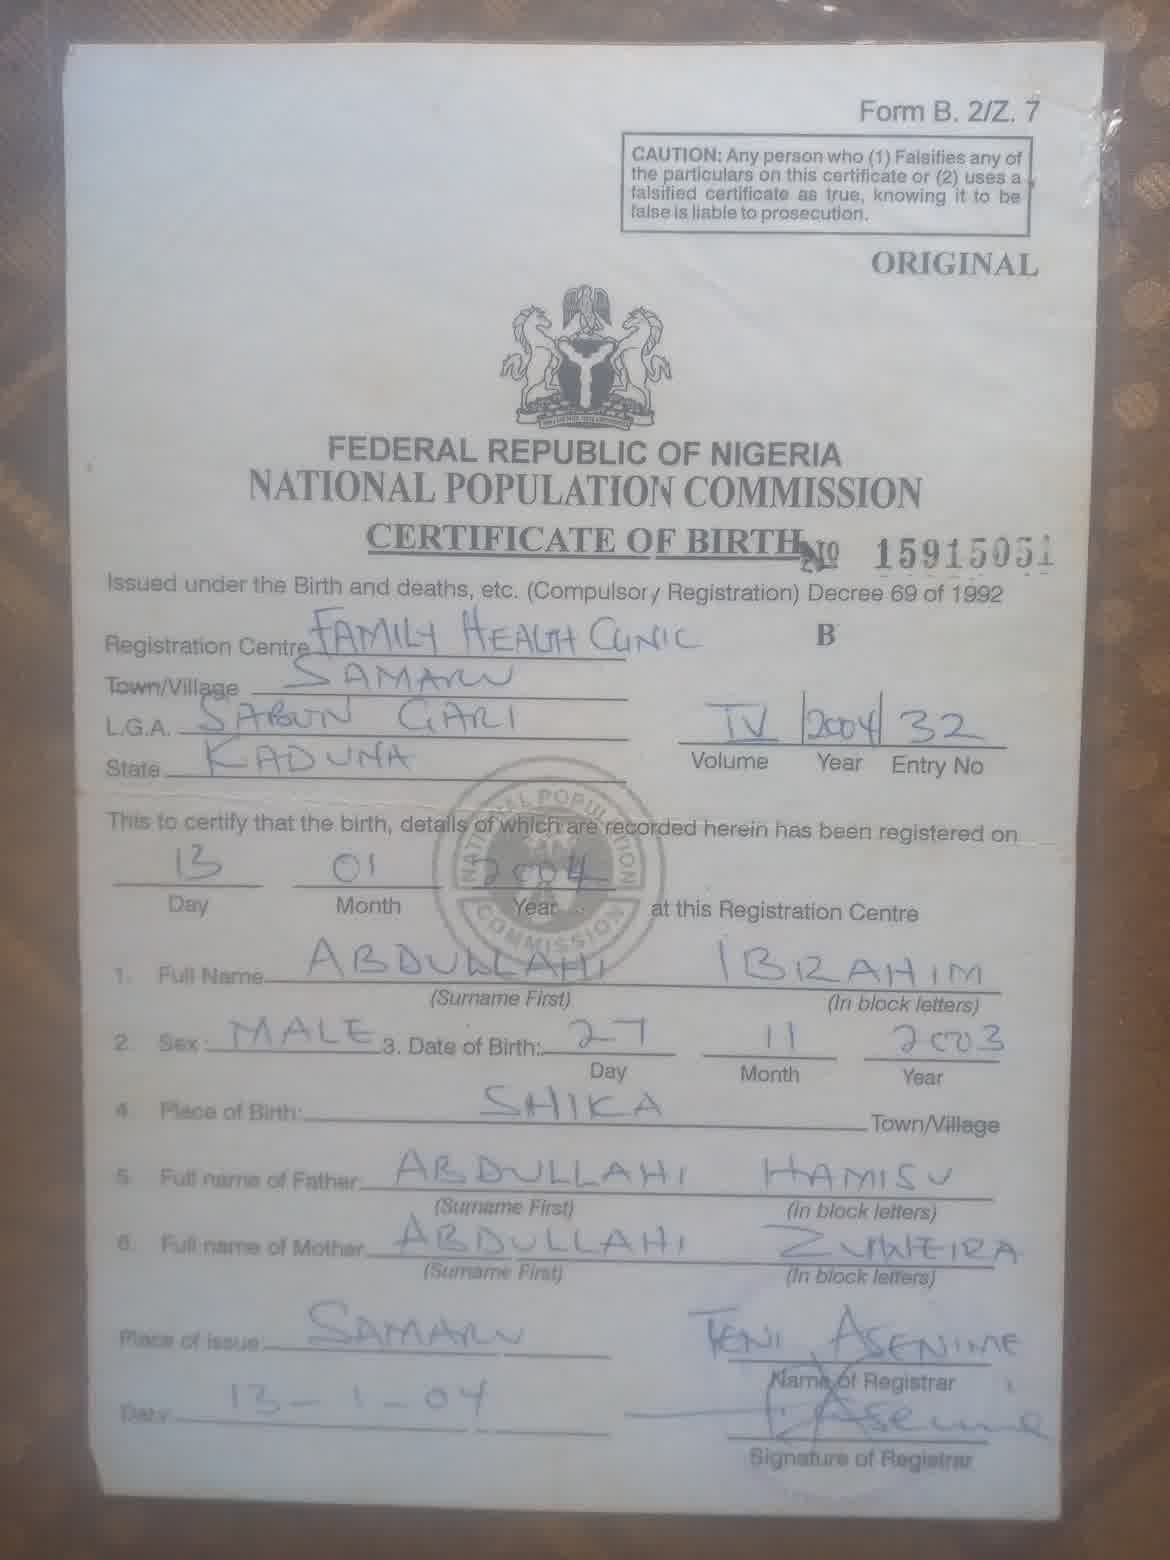 Form B. 2/Z. 7
CAUTION: Any person who (1) Falsifies any of
the particulars on this certificate or (2) uses a
falsified certificate as true, knowing it to be
false is liable to prosecution.
ORIGINAL
FEDERAL REPUBLIC OF NIGERIA
NATIONAL POPULATION COMMISSION
CERTIFICATE OF BIRTH No 15915051
Issued under the Birth and deaths, etc. (Compulsory Registration) Decree 69 of 1992
Registration Centre FAMILY HEALTH CLINIC B
Town/Village SAMARU
L.G.A. SABUN GARI IV 2004 32
State KADUNA Volume Year Entry No
This to certify that the birth, details of which are recorded herein has been registered on
13 01 2004
Day Month Year at this Registration Centre
NATIONAL POPULATION COMMISSION
1. Full Name ABDULLAHI IBRAHIM
(Surname First) (In block letters)
2. Sex: MALE 3. Date of Birth: 27 11 2003
Day Month Year
4. Place of Birth: SHIKA Town/Village
5. Full name of Father ABDULLAHI HAMISU
(Surname First) (In block letters)
6. Full name of Mother ABDULLAHI ZUWEIRA
(Surname First) (In block letters)
Place of issue: SAMARU TENI ASENIME
Name of Registrar
Date: 13-1-04
Signature of Registrar